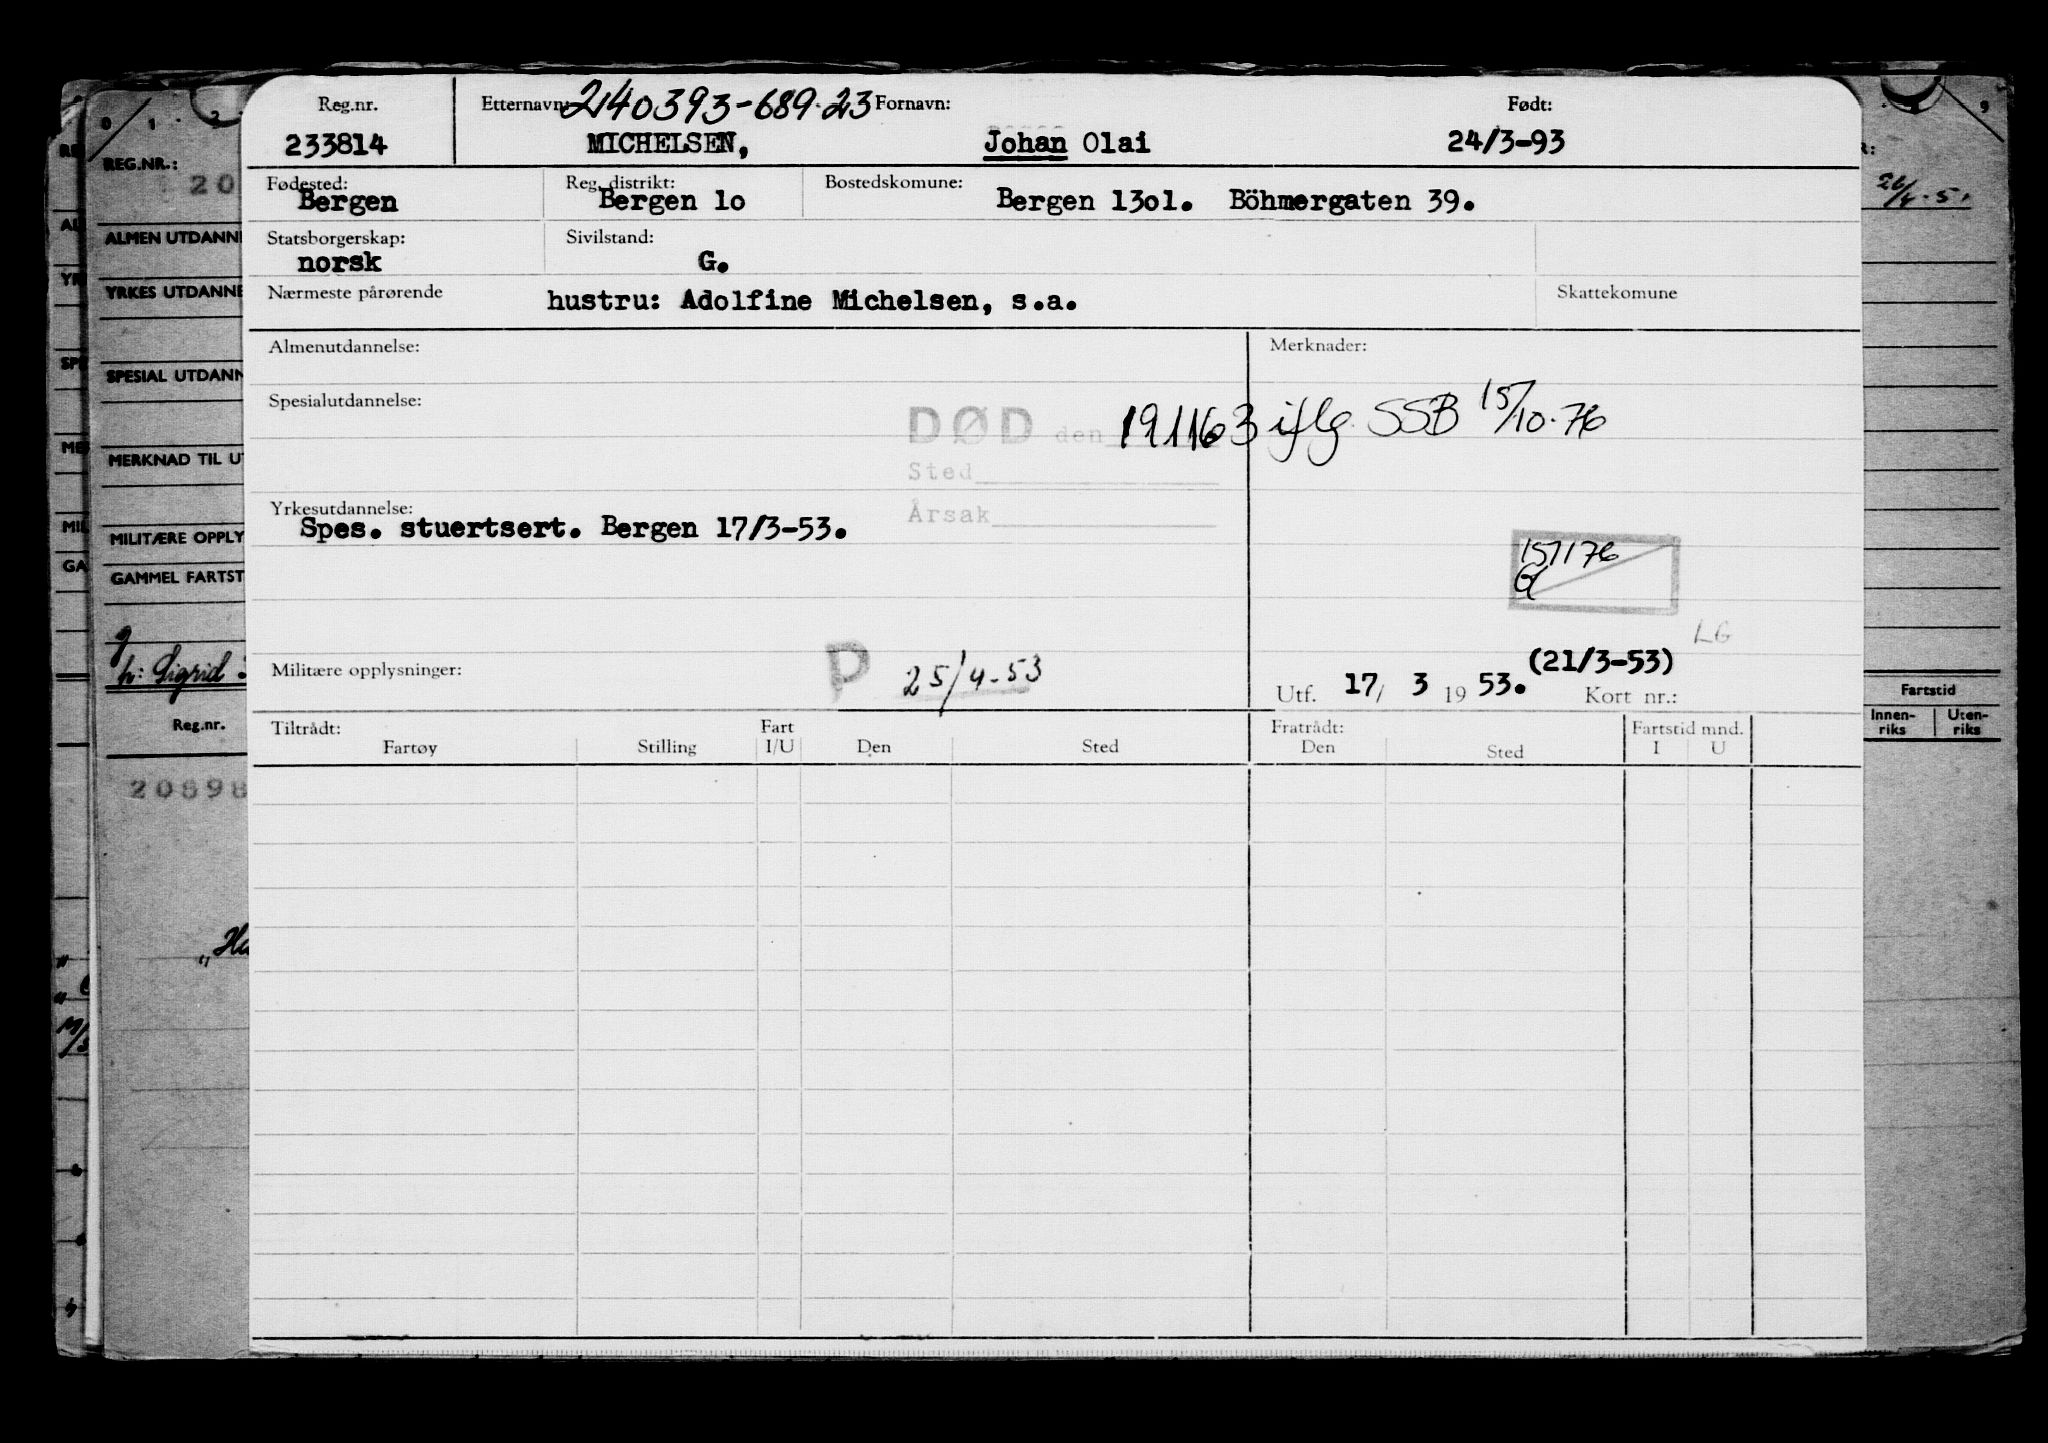 Reg.nr. Etternavn: 240393-689.23 Fornavn: Født:
233814 MICHELSEN, Johan Olai 24/3-93
Fødested: Reg. distrikt: Bostedskomune:
Bergen Bergen 1o Bergen 13o1. Böhmergaten 39.
Statsborgerskap: Sivilstand:
norsk G.
Nærmeste pårørende hustru: Adolfine Michelsen, s.a. Skattekomune
Almenutdannelse: Merknader:
Spesialutdannelse: DØD den 191163 iflg. SSB 15/10-76
Sted
Yrkesutdannelse: Årsak
Spes. stuertsert. Bergen 17/3-53.
LG
Militære opplysninger: P 25/4-53 (21/3-53)
Utf. 17/ 3 1953. Kort nr.:
Tiltrådt: Fart Fratrådt: Fartstid mnd.
Fartøy Stilling I/U Den Sted Den Sted I U
0 1 2
REG.NR.:
20
ALMEN UTDANNE
YRKES UTDANNE
SPESIAL UTDANN
MERKNAD TIL UT
MILITÆRE OPPLY
GAMMEL FARTST
g
h: Sigrid
Reg.nr.
20898
9
Fartstid
Innen-riks Uten-riks